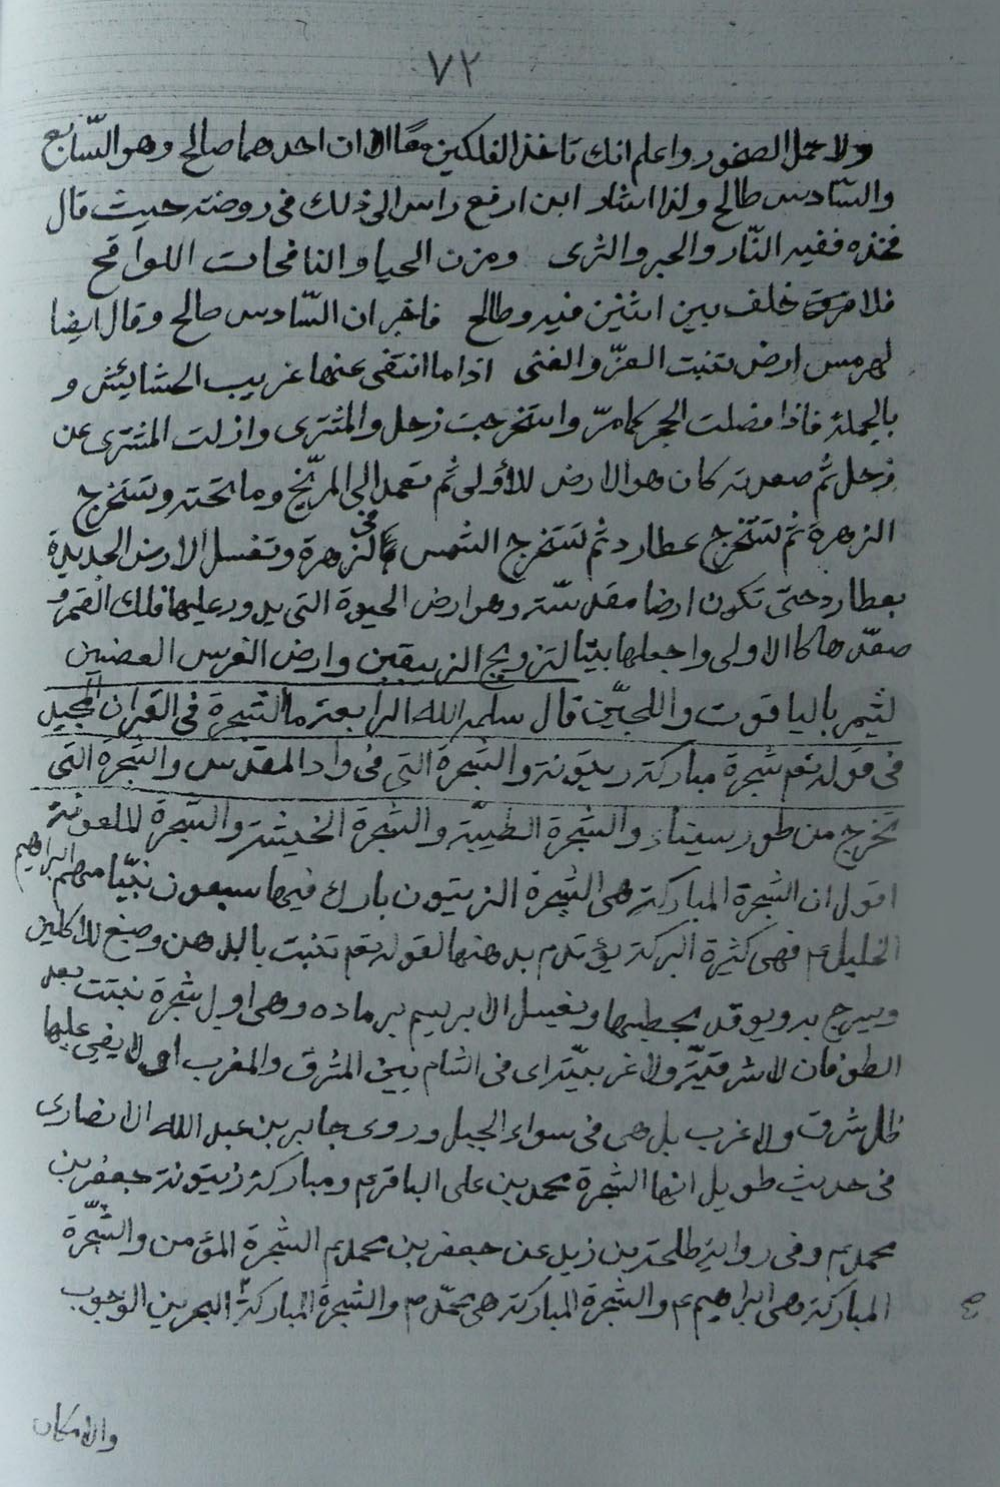 ٧٢
ولاحمل الصفور واعلم انك تاخذ الفلكين معًا الا ان احدهما صالح وهو السّابع
والسّادس طالح ولذا اشار ابن ارفع راس الى ذلك فى روضته حيث قال
فخذه ففيه النّار والحبر والثرى ومزن الحيا والنافحات اللواقح
فلا فرق خلف بين اثنين فيه وطالح فاخبر ان السّادس صالح وقال ايضا
لهرمس ارض تنبت العزّ والغنى اذا ما انتفى عنها غريب الحشائش و
بالجملة فاذا فصلت الحجر كما مرّ واستخرجت زحل والمشترى وازلت المشترى عن
زحل ثم صعدته كان هو الارض الأولى ثم تعمل الى المرّيخ وما تحته وتستخرج
الزهرة ثم تستخرج عطارد ثم تستخرج الشمس فى الزهرة وتغسل الارض الجديدة
بعطارد حتى تكون ارضا مقدسّة وهو ارض الحيوة التى يدور عليها فلك القمر و
صعّدها كالاولى واجعلها بيتا لتزويج الزيبقين وارض الغرس الغصنين
لتثمر بالياقوت واللجين قال سلمه الله الرابعة ما الشجرة فى القران المجيد
فى قوله تعم شجرة مباركة زيتونة والشجرة التى فى واد المقدس والشجرة التى
تخرج من طور سيناء والشجرة الطيبّة والشجرة الخبيثة والشجرة الملعونة
اقول ان الشجرة المباركة هى الشجرة الزيتون بارك فيها سبعون نبيّا منهم ابراهيم
الخليل عم فهى كثيرة البركة يؤتدم بدهنها لقوله تعم تنبت بالدهن وصبغ للاكلين
ويسرج به ويوقد بحطبها ويغسل الابريسم برماده وهى اول شجرة نبتت بعد
الطوفان لا شرقيّة ولا غربيّة اى فى الشام بين المشرق والمغرب او لا يفئ عليها
ظل شرق ولا غرب بل هى فى سواء الجبل وروى جابر بن عبد الله الانصارى
فى حديث طويل انها الشجرة محمد بن على الباقر عم ومباركة زيتونة جعفر بن
محمد عم وفى رواية طلحة بن زيد عن جعفر بن محمد عم الشجرة المؤمن والشجّرة
المباركة هى ابراهيم عم والشجرة المباركة هى محمّد ص والشجرة المباركة البحرين الوجوب
والامكان